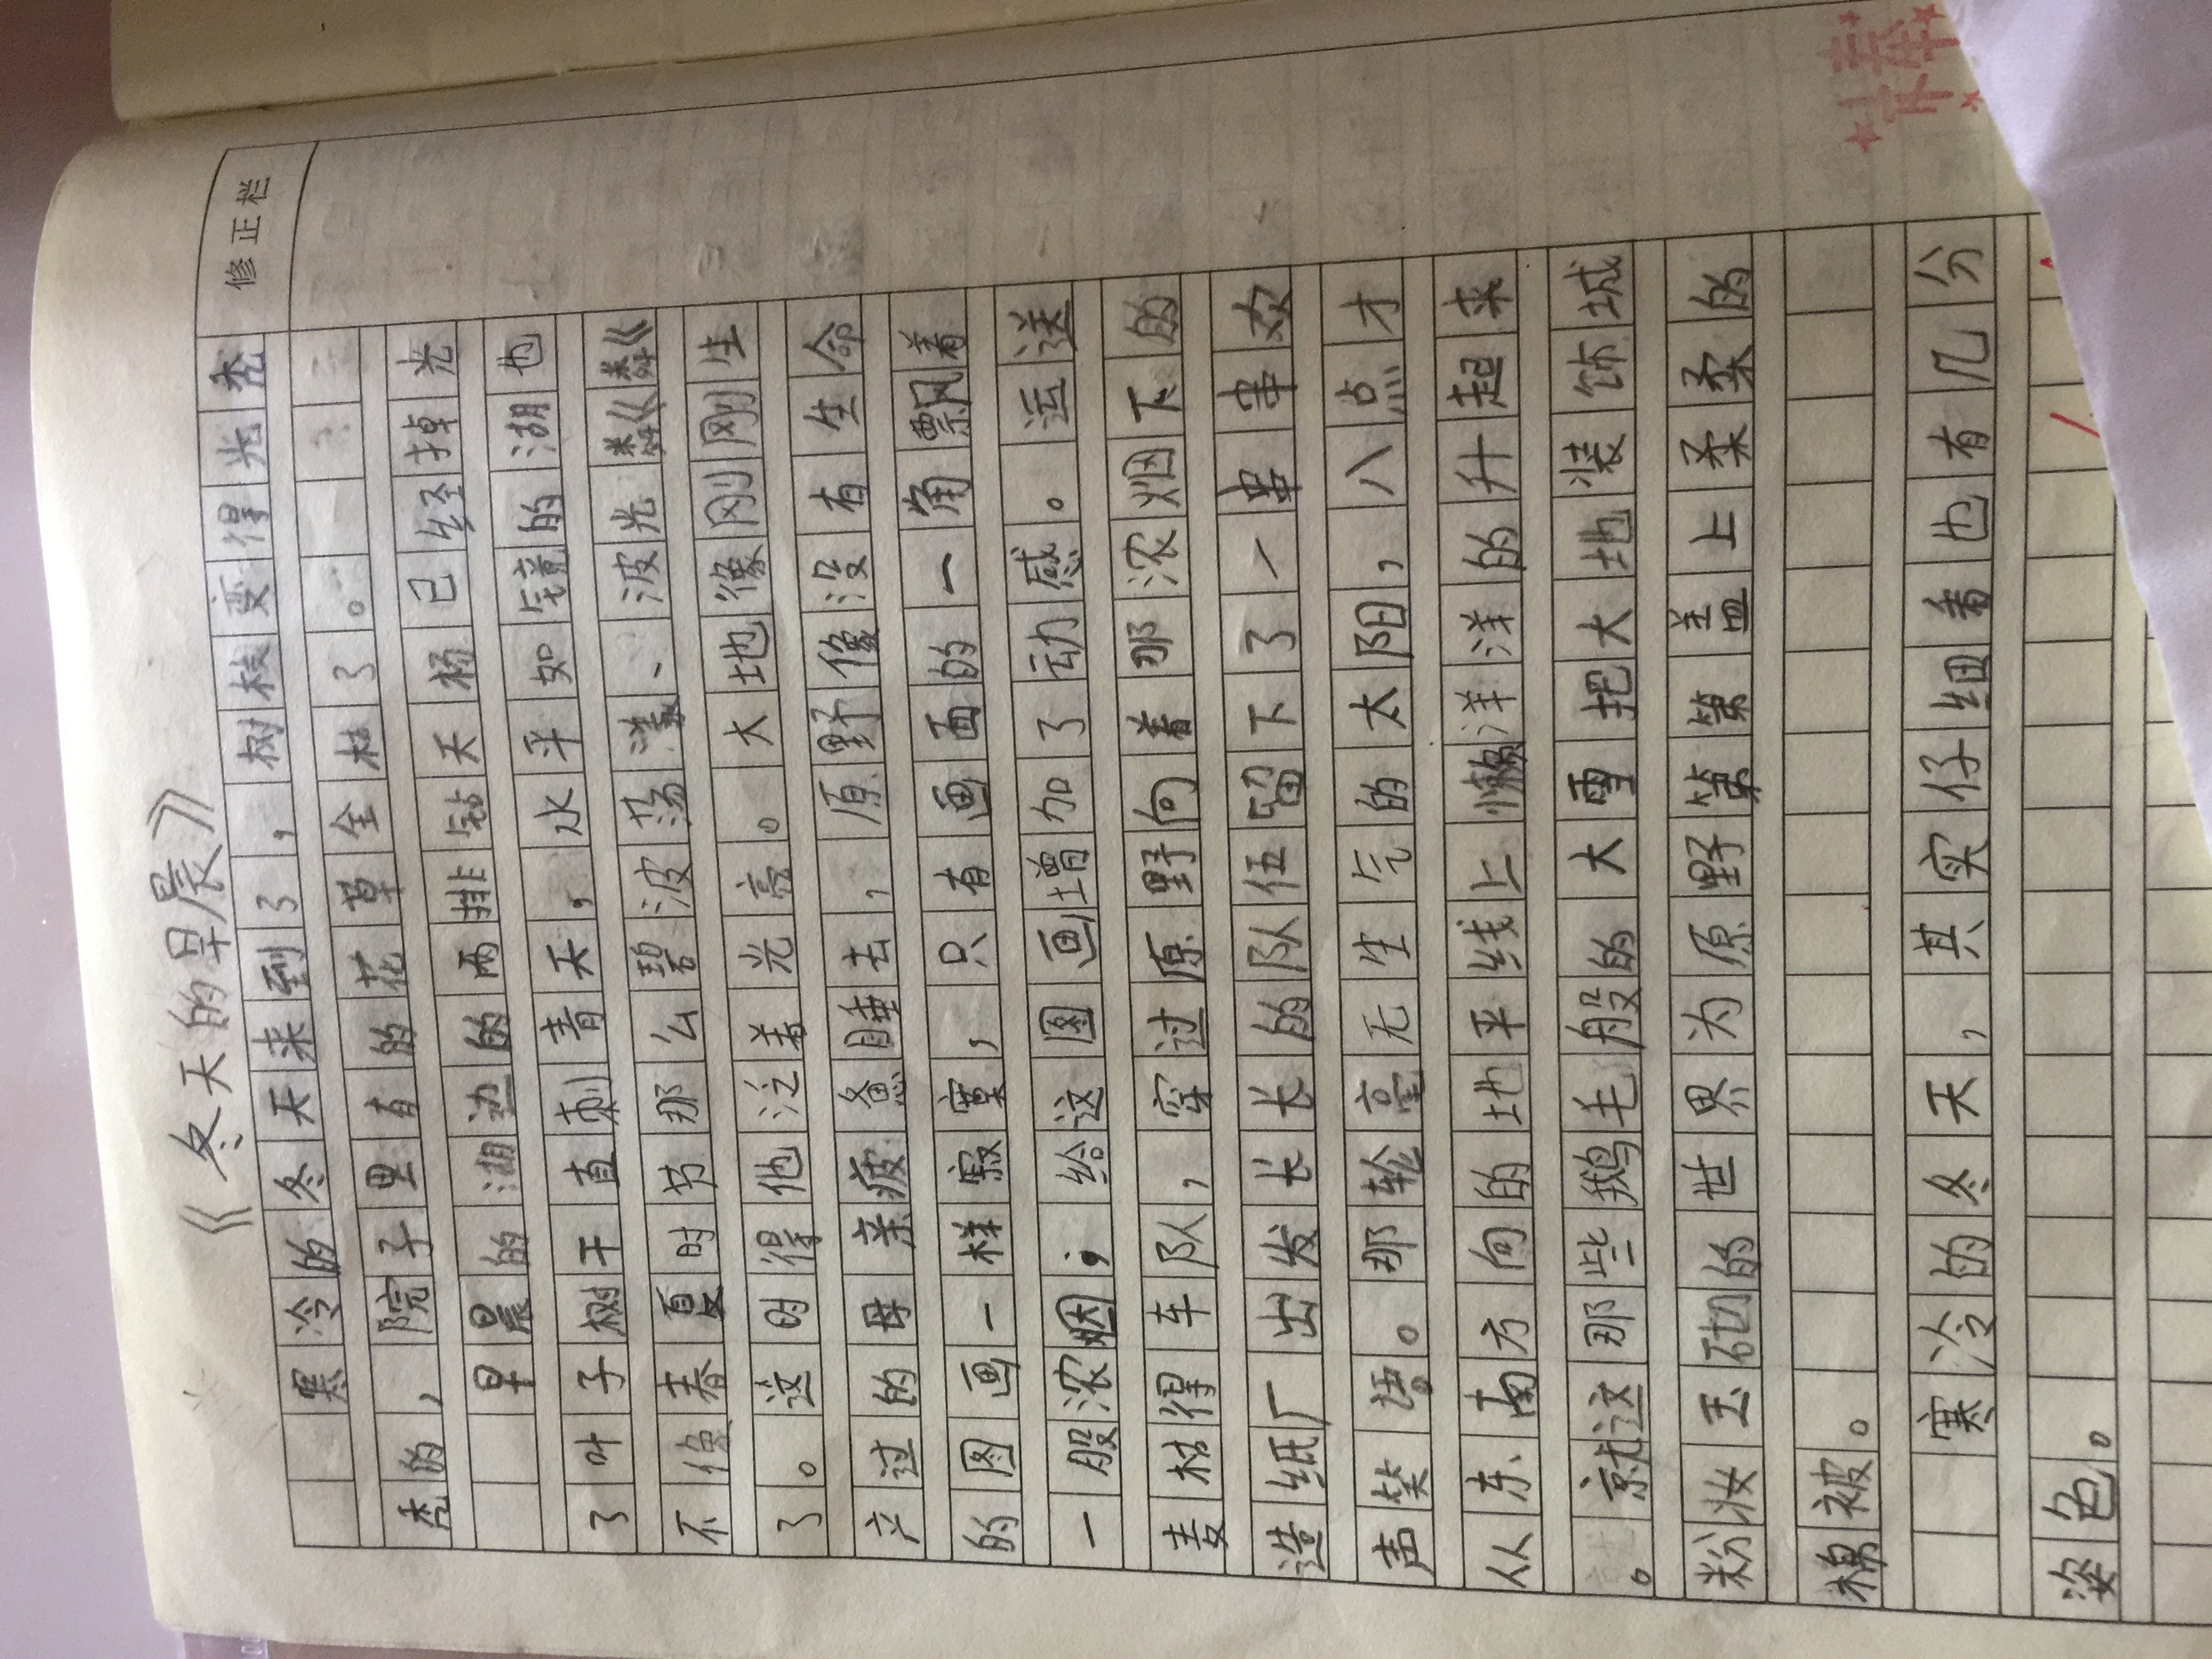 《冬天的早晨》
修正栏
寒冷的冬天来到了，树枝变得光秃
秃的，院子里有的花草全枯了。
早晨的湖边的两排钻天杨已经掉光
了叶子树干直刺青天，水平如镜的湖也
不像春夏时节那么碧波荡漾、波光粼粼
了。这时得他泛着光亮。大地像刚刚生
产过的母亲疲惫睡去，原野像没有生命
的图画一样寂寞，只有画面的一角飘着
一股浓烟；给这图画增加了动感。运送
麦材得车队，穿过原野向着那浓烟下的
造纸厂出发长长的队伍留下了一串串欢
声笑语。那轮毫无生气的太阳，八点才
从东南方向的地平线上懒洋洋的升起来
。就这那些鹅毛般的大雪把大地装饰城
粉妆玉砌的世界为原野第第盖上柔柔的
棉被。
寒冷的冬天，其实仔细看也有几分
姿色。